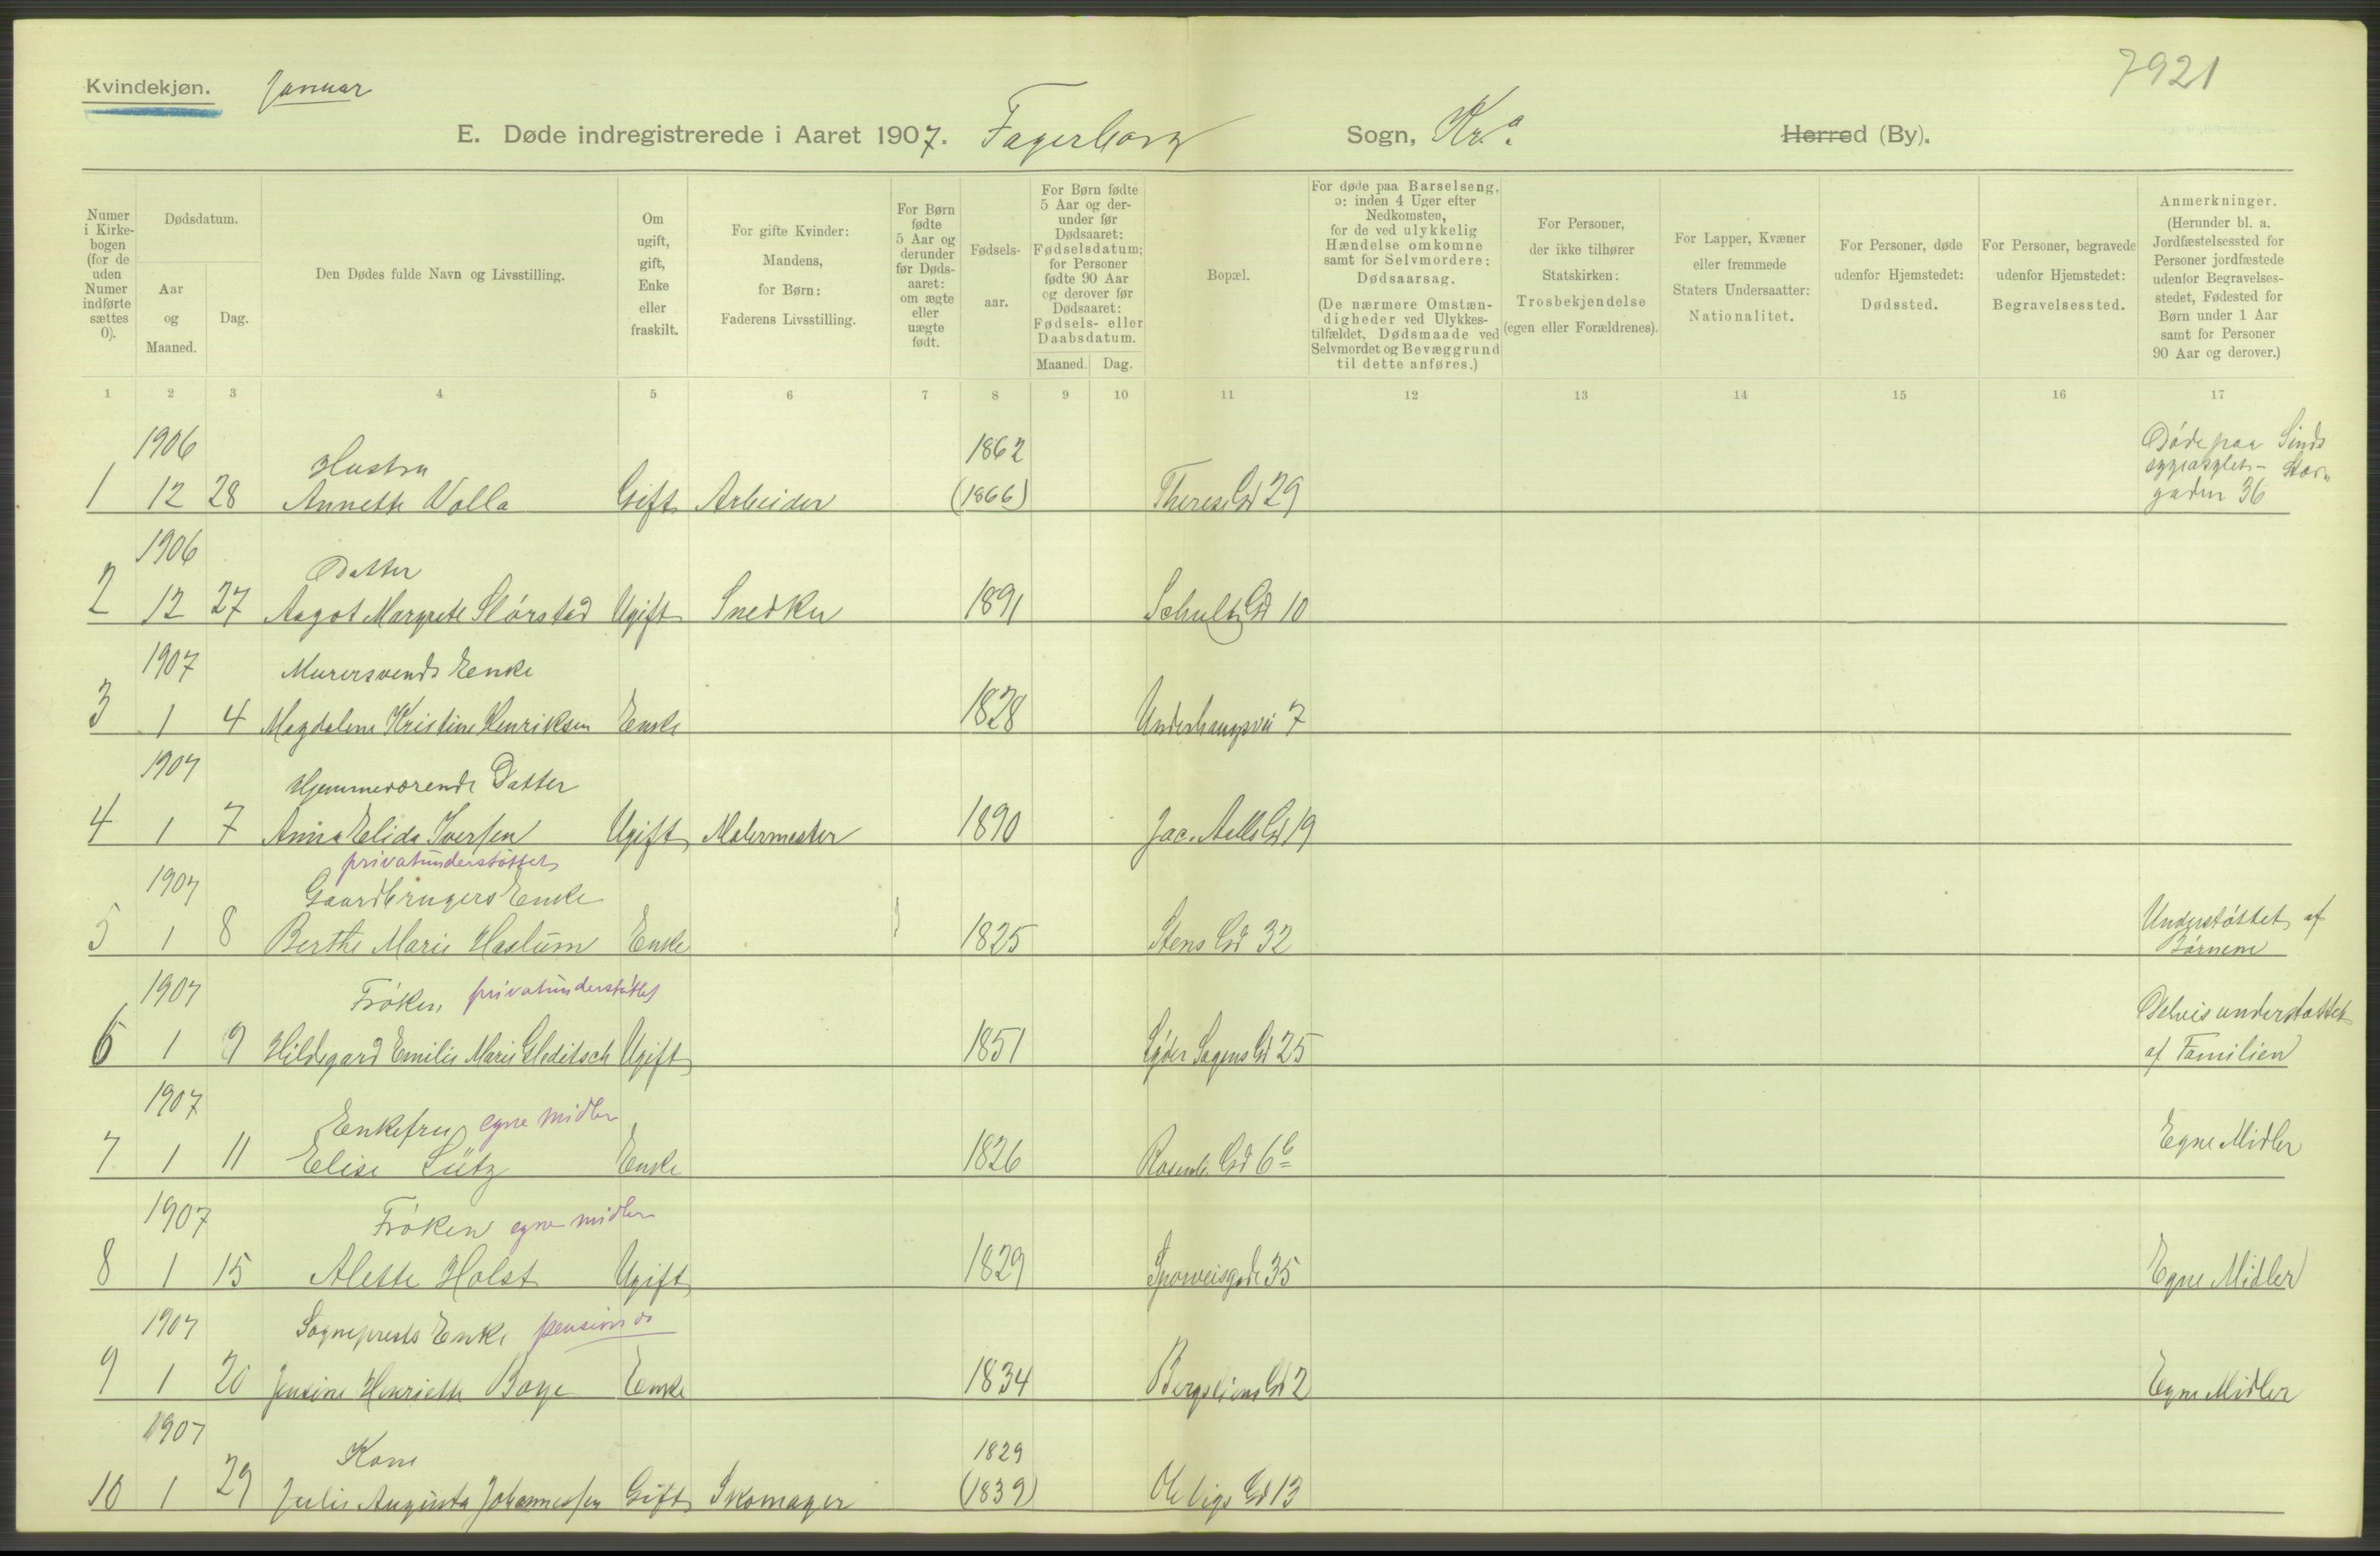 7921
Kvindekjøn. Januar
E. Døde indregistrerede i Aaret 1907. Fagerborg Sogn, Kr.a Herred (By).
Numer i Kirkebogen (for de uden Numer indførte sættes 0).
Dødsdatum.
Aar og Maaned.
Dag.
Den Dødes fulde Navn og Livsstilling.
Om ugift, gift, Enke eller fraskilt.
For gifte Kvinder: Mandens, for Børn: Faderens Livsstilling.
For Børn fødte 5 Aar og derunder før Dødsaaret: om ægte eller uægte født.
Fødselsaar.
For Børn fødte 5 Aar og derunder før Dødsaaret: Fødselsdatum; for Personer fødte 90 Aar og derover før Dødsaaret: Fødsels- eller Daabsdatum.
Maaned. Dag.
Bopæl.
For døde paa Barselseng, ɔ: inden 4 Uger efter Nedkomsten, for de ved ulykkelig Hændelse omkomne samt for Selvmordere: Dødsaarsag.
(De nærmere Omstændigheder ved Ulykkestilfældet, Dødsmaade ved Selvmordet og Bevæggrund til dette anføres.)
For Personer, der ikke tilhører Statskirken: Trosbekjendelse (egen eller Forældrenes).
For Lapper, Kvæner eller fremmede Staters Undersaatter: Nationalitet.
For Personer, døde udenfor Hjemstedet: Dødssted.
For Personer, begravede udenfor Hjemstedet: Begravelsessted.
Anmerkninger. (Herunder bl. a. Jordfæstelsessted for Personer jordfæstede udenfor Begravelsesstedet, Fødested for Børn under 1 Aar samt for Personer 90 Aar og derover.)
1 2 3 4 5 6 7 8 9 10 11 12 13 14 15 16 17
1906 Hustru 1862 Døde paa Sinds
sygeasylet- Stor-
1 12 28 Annette Volla Gift Arbeider (1866) Therese Gd 29 gaden 36
1906 Datter
2 12 27 Aagot Margrete Skørstad Ugift Snedker 1891 Schultz Gd 10
1907 Murersvends Enke
3 1 4 Magdalene Kristine Henriksen Enke 1828 Underhaugsvei 7
1907 Hjemmeværende Datter
4 1 7 Anna Elida Iversen Ugift Malermester 1890 Jac. Aalls Gd 19
privatunderstøttet
1907 Gaardbrugers Enke Understøttet af
5 1 8 Berthe Marie Haslum Enke 1825 Stens Gd 32 Børnene
1907 Frøken privatunderstøttet Delvis understøttet
6 1 9 Hildegard Emilie Marie Gleditsch Ugift 1851 Lyder Sagens Gd 25 af Familien
1907 Enkefru egne midler
7 1 11 Elise Lütz Enke 1826 Rosenb. Gd 6b Egne Midler
1907 Frøken egne midler
8 1 15 Alette Holst Ugift 1829 Sporveisgade 35 Egne Midler
1907 Sogneprests Enke pension
9 1 20 Jensine Henriette Boye Enke 1834 Bergsliens Gd 2 Egne Midler
1907 Kone 1829
10 1 29 Julie Augusta Johannessen Gift Skomager (1839) Gd 13